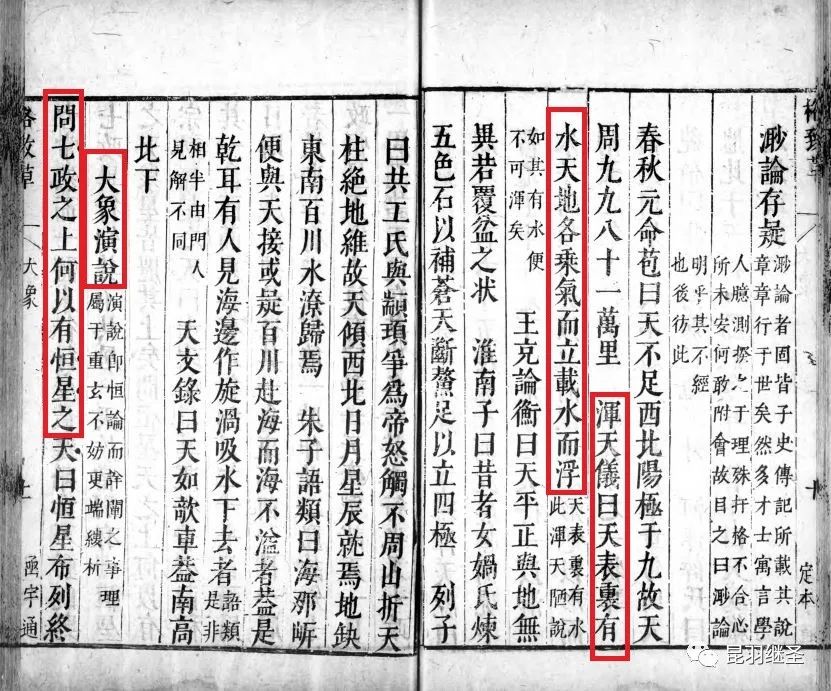 格致草
定本
渺論存疑
渺論者固皆子史傳記所載其說
章章行于世矣然多才士寓言學
人臆測揆之于理殊扞格不合心
所未安何敢附會故目之曰渺論
明乎其不經
也後彷此
春秋元命苞曰天不足西北陽極于九故天
周九九八十一萬里 渾天儀曰天表裏有
水天地各乘氣而立載水而浮
天表裏有水
此渾天陋說
如其有水便
不可渾矣
王充論衡曰天平正與地無
異若覆盆之狀 淮南子曰昔者女媧氏煉
五色石以補蒼天斷鼇足以立四極 列子
曰共工氏與顓頊爭爲帝怒觸不周山折天
柱絶地維故天傾西北日月星辰就焉地缺
東南百川水潦歸焉 朱子語類曰海那岍
便與天接或疑百川赴海而海不溢者蓋是
乾耳有人見海邊作旋渦吸水下去者
語類
是非
相半由門人
見解不同
天文錄曰天如欹車蓋南高
北下
大象演說
演說即恒論而詳闡之事理
屬于重玄不妨更端縷析
問七政之上何以有恒星之天曰恒星布列終
格致草
大象
函宇通
昆羽继圣